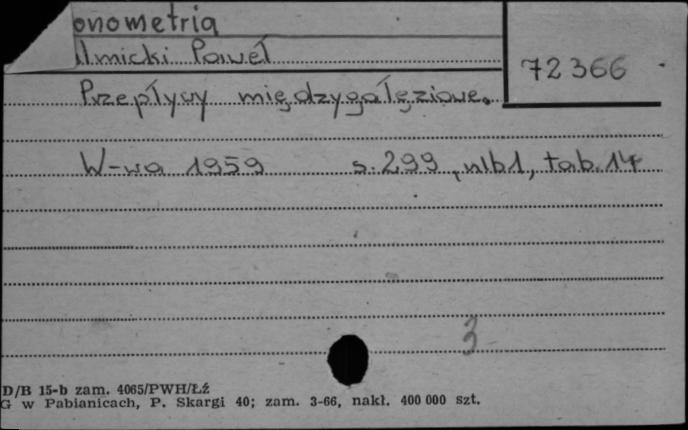 onometria
lmicki Paweł
72366
Przepływy międzygałęziowe.
W-wa 1959 s. 299, nlb1, tab. 14
3
D/B 15-b zam. 4065/PWH/ŁŹ
G w Pabianicach, P. Skargi 40; zam. 3-66, nakł. 400 000 szt.